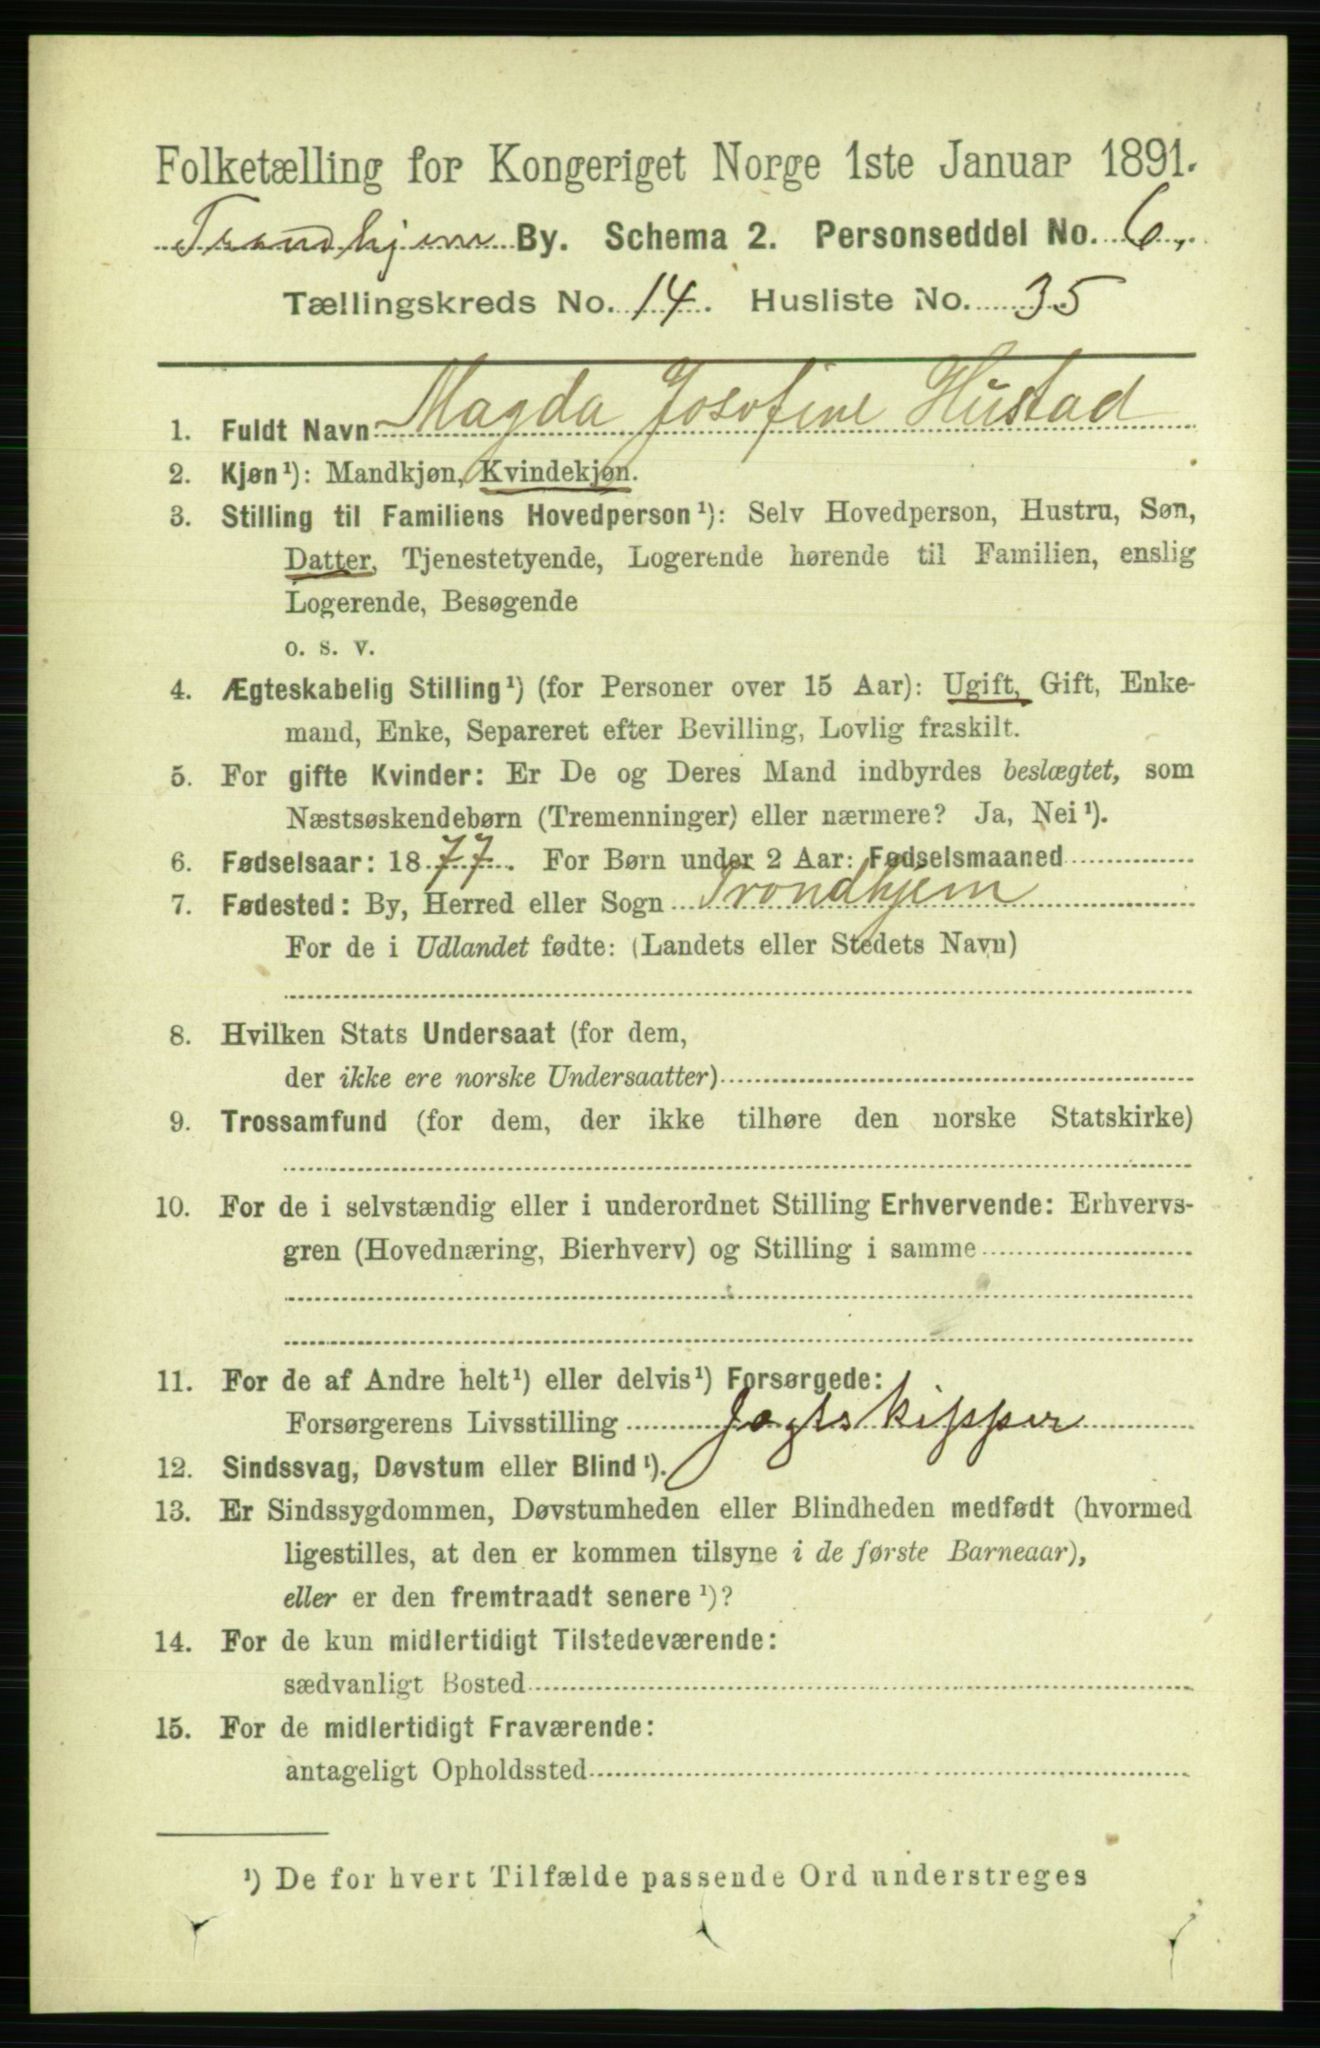 Folketælling for Kongeriget Norge 1ste Januar 1891.
Trondhjem By. Schema 2. Personseddel No. 6.
Tællingskreds No. 14. Husliste No. 35
1. Fuldt Navn Magda Josofine Hustad
2. Kjøn¹): Mandkjøn, Kvindekjøn.
3. Stilling til Familiens Hovedperson¹): Selv Hovedperson, Hustru, Søn,
Datter, Tjenestetyende, Logerende hørende til Familien, enslig
Logerende, Besøgende
o. s. v.
4. Ægteskabelig Stilling¹) (for Personer over 15 Aar): Ugift, Gift, Enke-
mand, Enke, Separeret efter Bevilling, Lovlig fraskilt.
5. For gifte Kvinder: Er De og Deres Mand indbyrdes beslægtet, som
Næstsøskendebørn (Tremenninger) eller nærmere? Ja, Nei¹).
6. Fødselsaar: 1877. For Børn under 2 Aar: Fødselsmaaned
7. Fødested: By, Herred eller Sogn Trondhjem
For de i Udlandet fødte: (Landets eller Stedets Navn)
8. Hvilken Stats Undersaat (for dem,
der ikke ere norske Undersaatter)
9. Trossamfund (for dem, der ikke tilhøre den norske Statskirke)
10. For de i selvstændig eller i underordnet Stilling Erhvervende: Erhvervs-
gren (Hovednæring, Bierhverv) og Stilling i samme
11. For de af Andre helt¹) eller delvis¹) Forsørgede:
Forsørgerens Livsstilling Jagtskipper
12. Sindssvag, Døvstum eller Blind¹).
13. Er Sindssygdommen, Døvstumheden eller Blindheden medfødt (hvormed
ligestilles, at den er kommen tilsyne i de første Barneaar),
eller er den fremtraadt senere¹)?
14. For de kun midlertidigt Tilstedeværende:
sædvanligt Bosted
15. For de midlertidigt Fraværende:
antageligt Opholdssted
¹) De for hvert Tilfælde passende Ord understreges